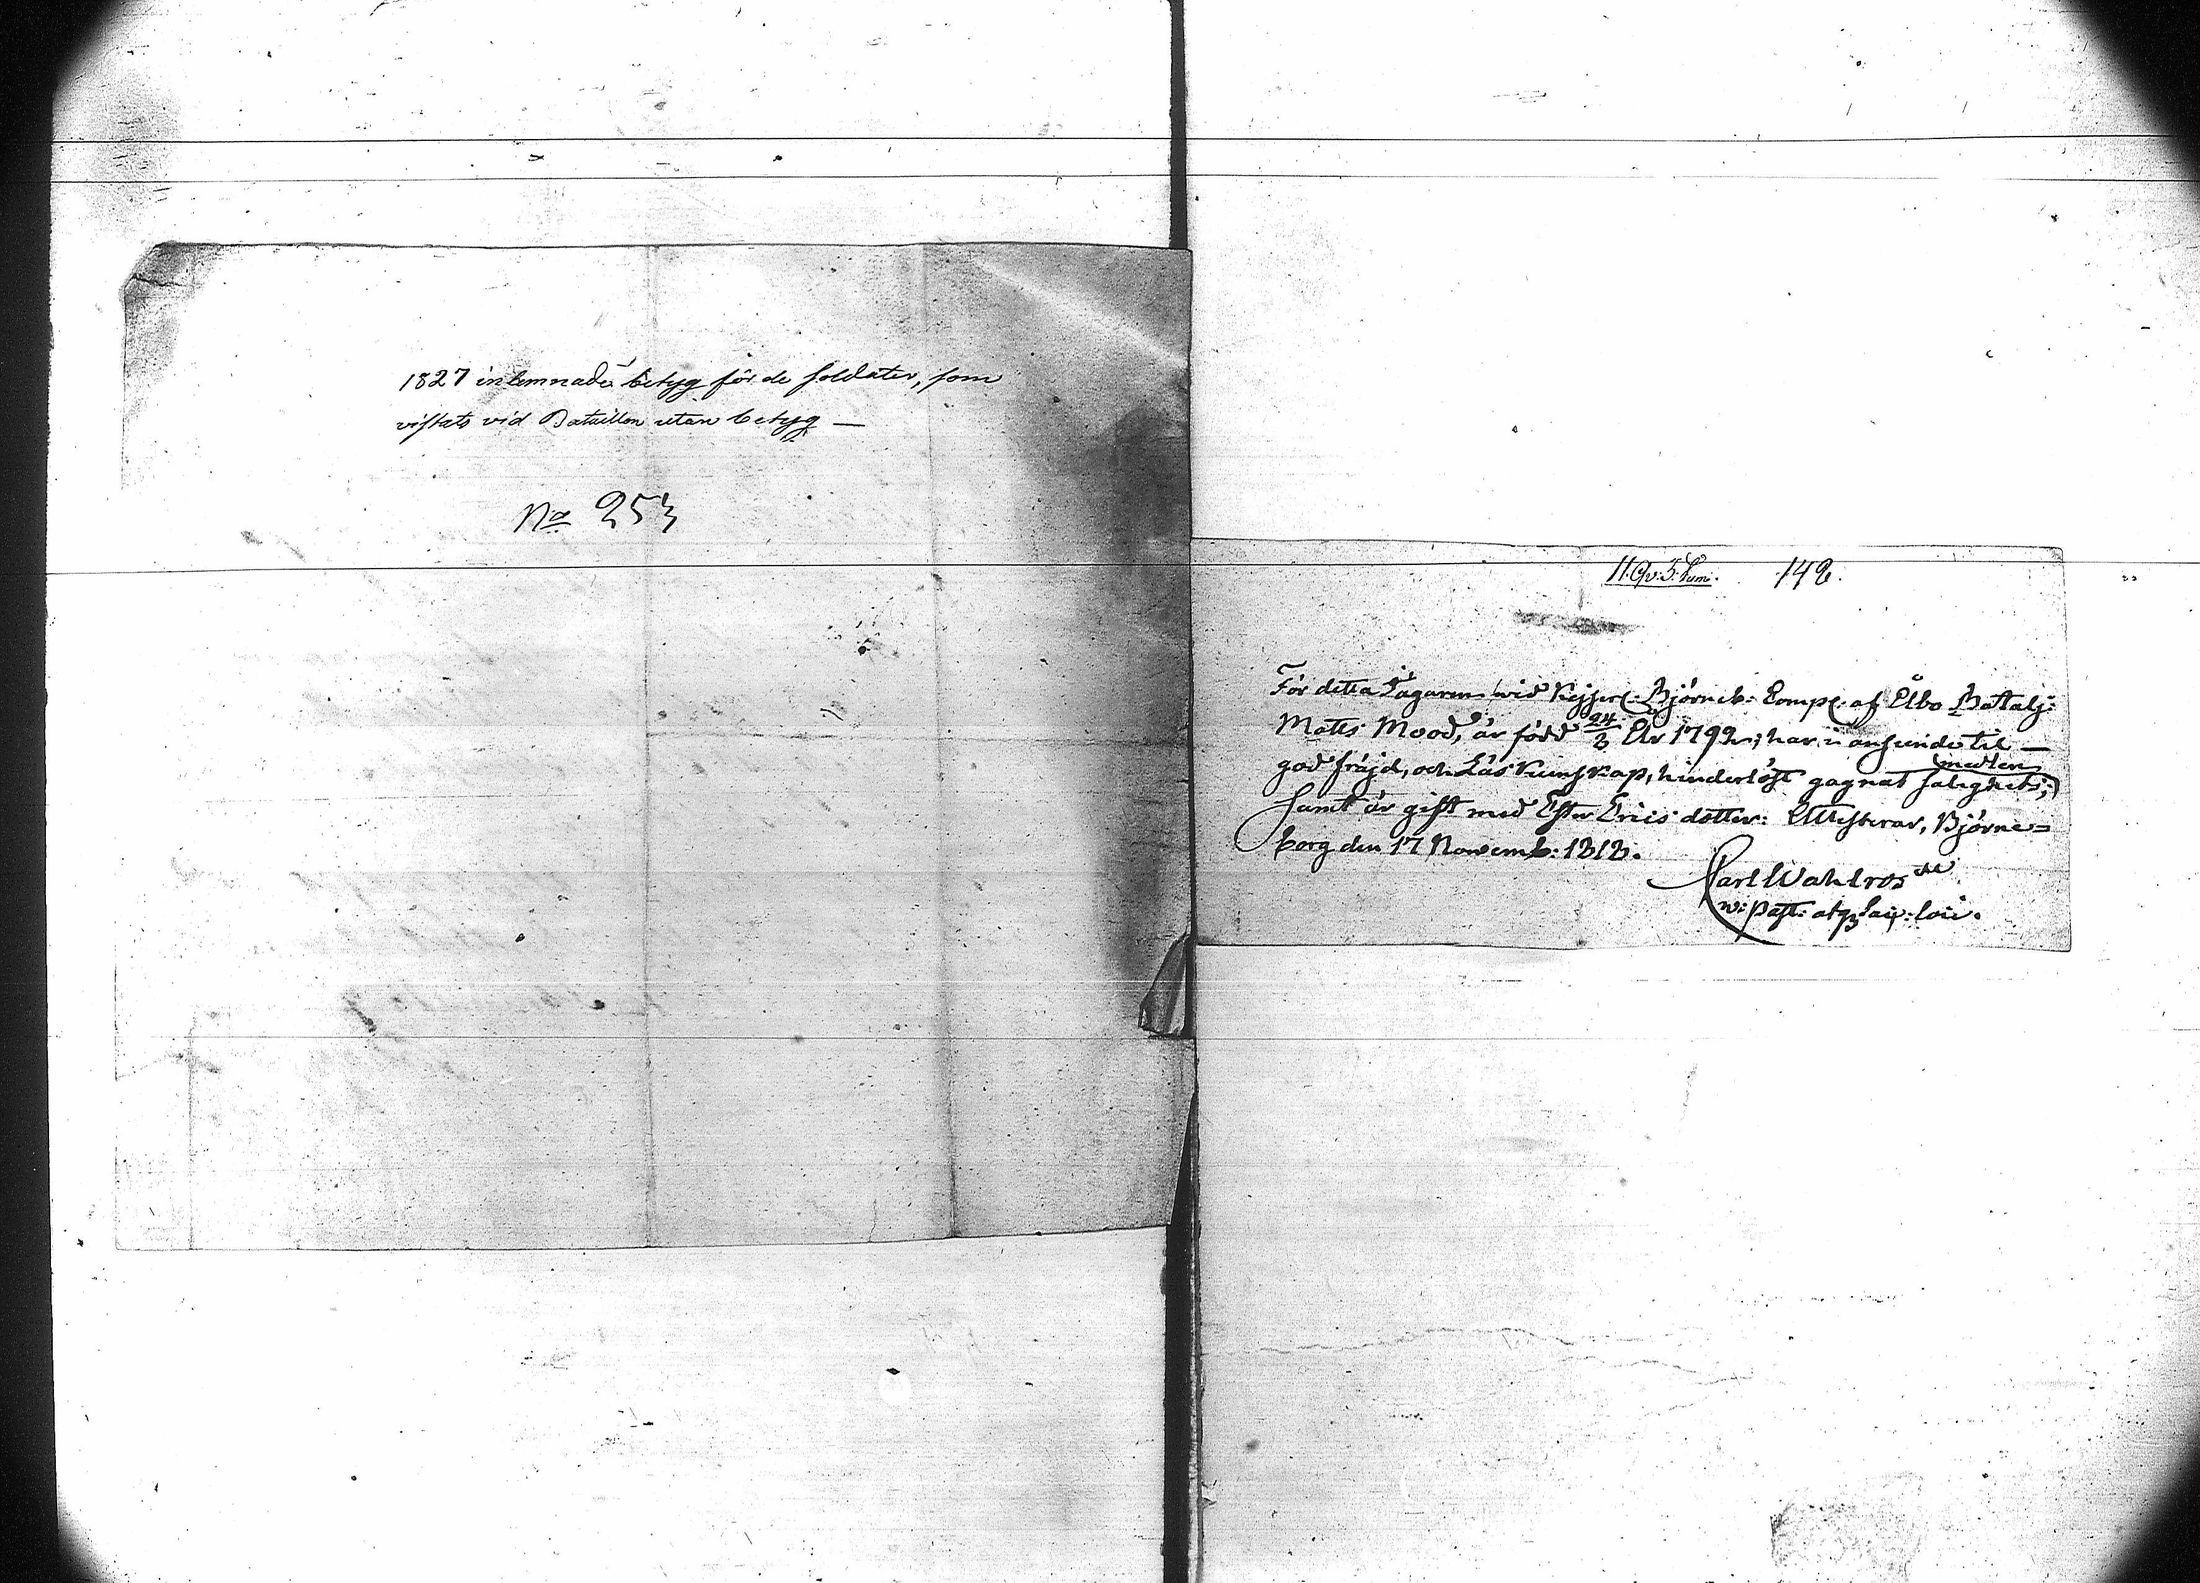 1827 inlemnade betyg för de soldater, som
vistats vid Bataillon utan betyg —
No 253
11. Qv. 5. Lumi. 142.
För detta Jägaren wid Kejserl: Björneb: Comp: af Åbo Batalj:
Matts Mood, är född 24/3 År 1792; har i anseende til —
god fräjd, och Läskunskap, hinderlöst gagnat salighets medlen;
samt är gift med Ester Erics dotter: Attesterar, Björne=
borg den 17 Novemb: 1818.
Carl Wahlroos
w: Past: